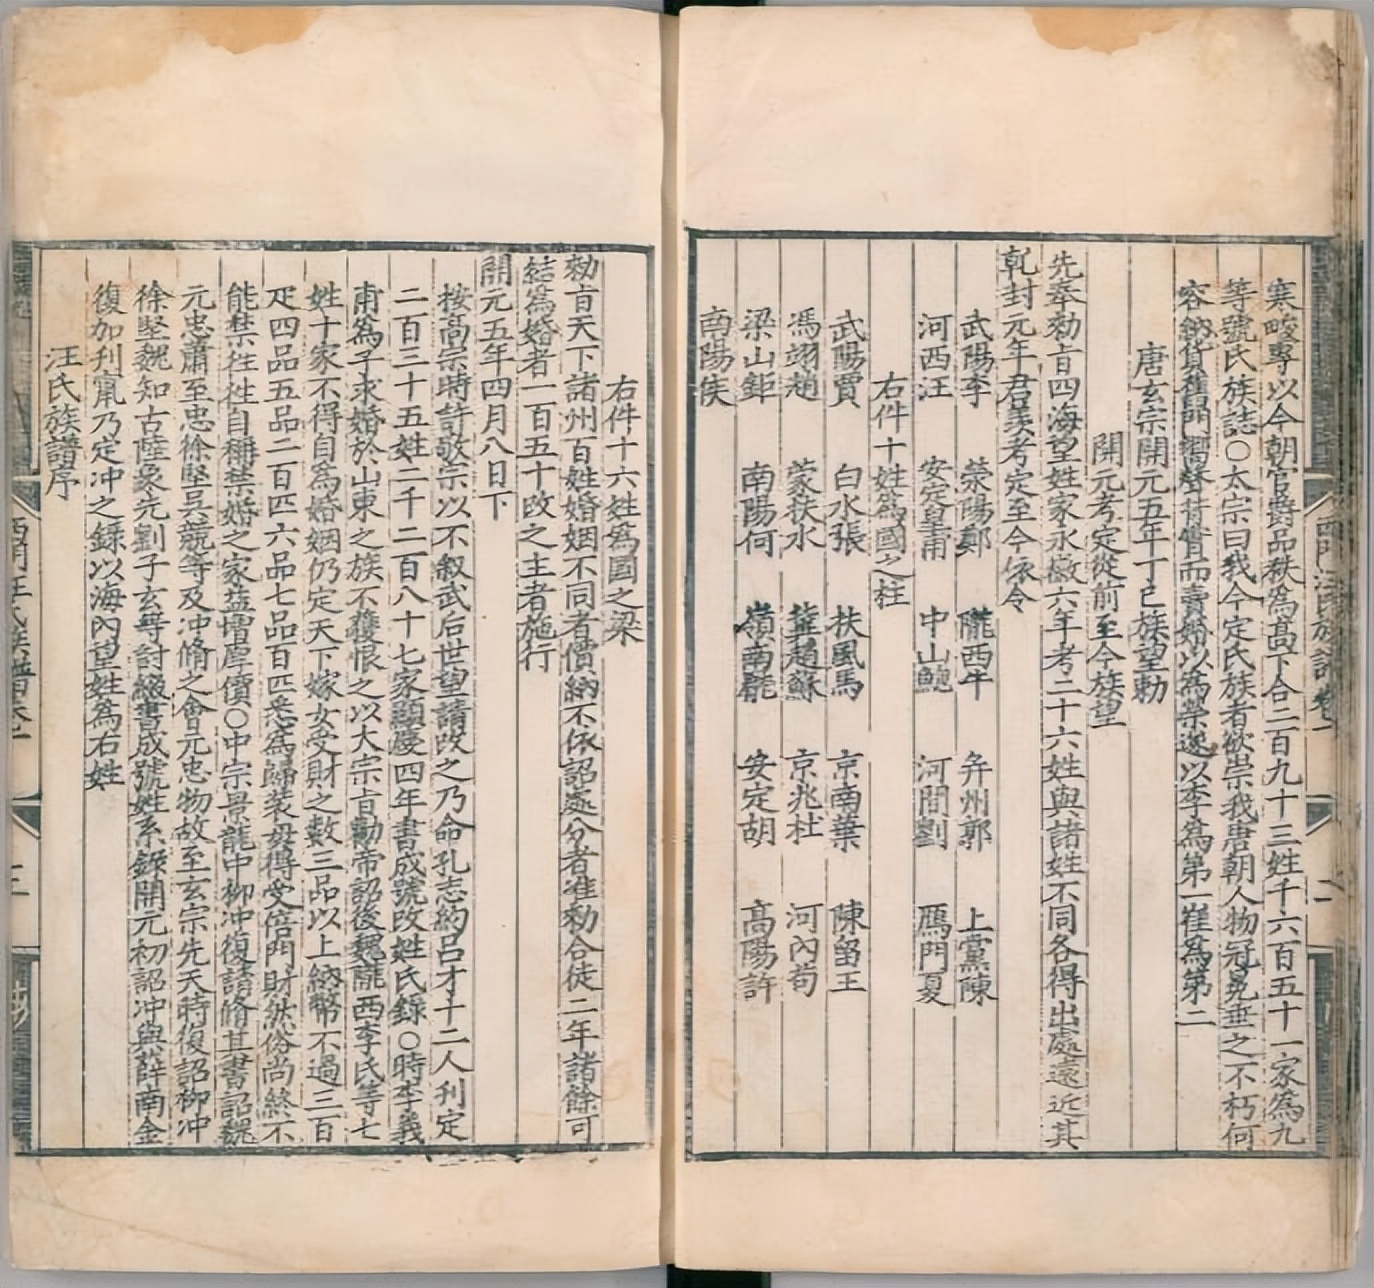 寒畯專以今朝官爵品秩為高下合二百九十三姓千六百五十一家為九
等號氏族誌○太宗曰我今定氏族者欲崇我唐朝人物冠冕垂之不朽何
容納貨舊門
而賣婚以為榮遂以李為第一崔為第二
唐玄宗開元五年丁巳族望勅
開元考定從前至今族望
先奉勅旨四海望姓家永徽六年考二十六姓與諸姓不同各得出處遠近其
乹封元年君義考定至今依令
武陽李 荥陽鄭 隴西牛 并州郭 上黨陳
河西汪 安定皇甫 中山鮑 河間劉 鴈門夏
右件十姓為國之柱
武陽賈 白水張 扶風馬 京南葉 陳留王
馮翊趙 蒙扶水 龔趙蘇 京兆杜 河內荀
梁山鉅 南陽何 嶺南龍 安定胡 高陽許
南陽侯
右件十六姓為國之梁
勅旨天下諸州百姓婚姻不同者價納不依詔丞分者准勅合徒二年諸餘可
結為婚者一百五十改之主者施行
開元五年四月八日下
按高宗時許敬宗以不叙武后世望請改之乃命孔志約呂才十二人刋定
二百三十五姓二千二百八十七家顯慶四年書成號改姓氏録○時李義
甫為子求婚於山東之族不獲恨之以太宗旨勸帝詔後魏隴西李氏等七
姓十家不得自為婚姻仍定天下嫁女受財之數三品以上納幣不過三百
疋四品五品二百匹六品七品百匹悉為歸裝毋得受倍門財然俗尚終不
能禁徃徃自稱禁婚之家益增厚價○中宗景龍中柳冲復請脩其書詔魏
元忠蕭至忠徐堅吳競等及冲脩之會元忠物故至玄宗先天時復詔柳冲
徐堅魏知古陸象先劉子玄等討綴書成號姓系錄開元初詔冲與薛南金
復加刋竄乃定冲之錄以海內望姓為右姓
汪氏族譜序
西門汪氏族譜卷一
二
西門汪氏族譜卷一
三